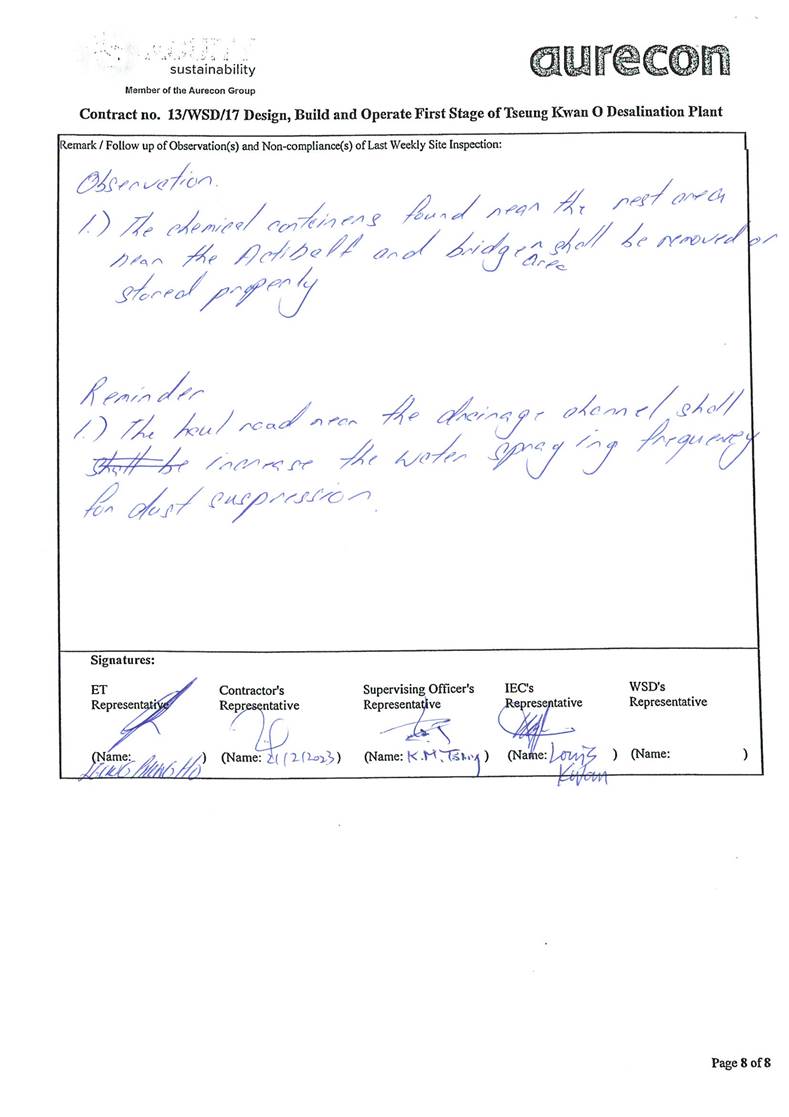 sustainability
aurecon
Member of the Aurecon Group
Contract no. 13/WSD/17 Design, Build and Operate First Stage of Tseung Kwan O Desalination Plant
Remark / Follow up of Observation(s) and Non-compliance(s) of Last Weekly Site Inspection:
Observation.
1.) The chemical containers found near the rest area
near the Actidaff and bridge area shall be removed or
stored properly
Reminder
1.) The haul road near the drainage channel shall
shall be increase the water spraying frequency
for dust suspression.
Signatures:
ET Representative
Contractor's Representative
Supervising Officer's Representative
IEC's Representative
WSD's Representative
(Name: )
(Name: 21/2/2023)
(Name: K.M. )
(Name: Louis Kwan )
(Name: )
Page 8 of 8